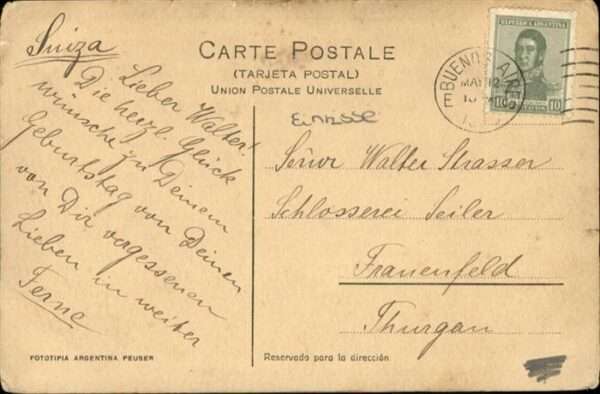 Suiza
CARTE POSTALE
(TARJETA POSTAL)
UNION POSTALE UNIVERSELLE
REPUBLICA ARGENTINA
BUENOS AIRES
MAY 12
10 10
Lieber Walter!
Die herzl. Glück
wünsche zu Deinem
Geburtstag von Deinen
von Dir vogessenen
Lieben in weiter
Ferne
Señor Walter Strasser
Schlosserei Seiler
Frauenfeld
Thurgau
FOTOTIPIA ARGENTINA PEUSER
Reservado para la dirección